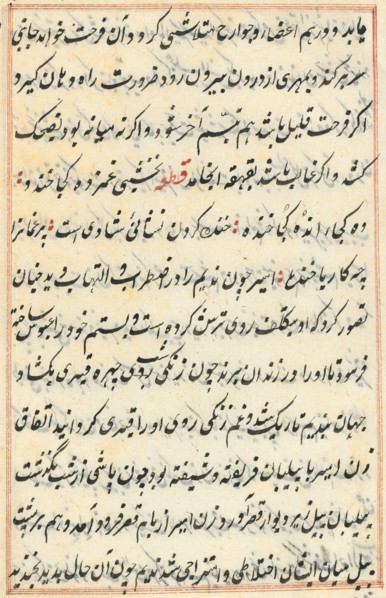 یابد و در هم اعضا و جوارح متلاشی کردد و آن فرحت خواهد جانبی
سر بر کند و بهری از درون بیرون رود ضرورت راه دهان کیرد
اکر فرحت قلیل باشد هم تبسم آخر شود و اکر نه میانه بود بضحک
کشد و اکر غالب باشد بقهقه انجامد قطعه نخشبی غمزده کجا خندد
ده کجا رانده کجا خنده خنده کردن نشانی شادی است پر غمانرا
بچه کار با خنده امیر چون ندیم را در اضطراب و التهاب دید خیان
تصور کرد که او بتکلف روی ترش کرده است و بستم خود را عبوس ساخته
فرمود تا او را در زندان برند چون زنکی شب روی بچهره قیری بکشاد
جهان بندیم تاریک شد و غم زنکی روی او را قیری کردانید اتفاق
زن امیر با پیلبان فریفته و شیفته بود چون پاشی از شب بگذشت
پیلبان پیل زیر دیوار قصر آورد و زن امیر از بام قصر فرود آمد و هم بر پشت
پیل میان ایشان اختلاطی و امتزاجی شد ندیم چون آن حال بدید بخندید